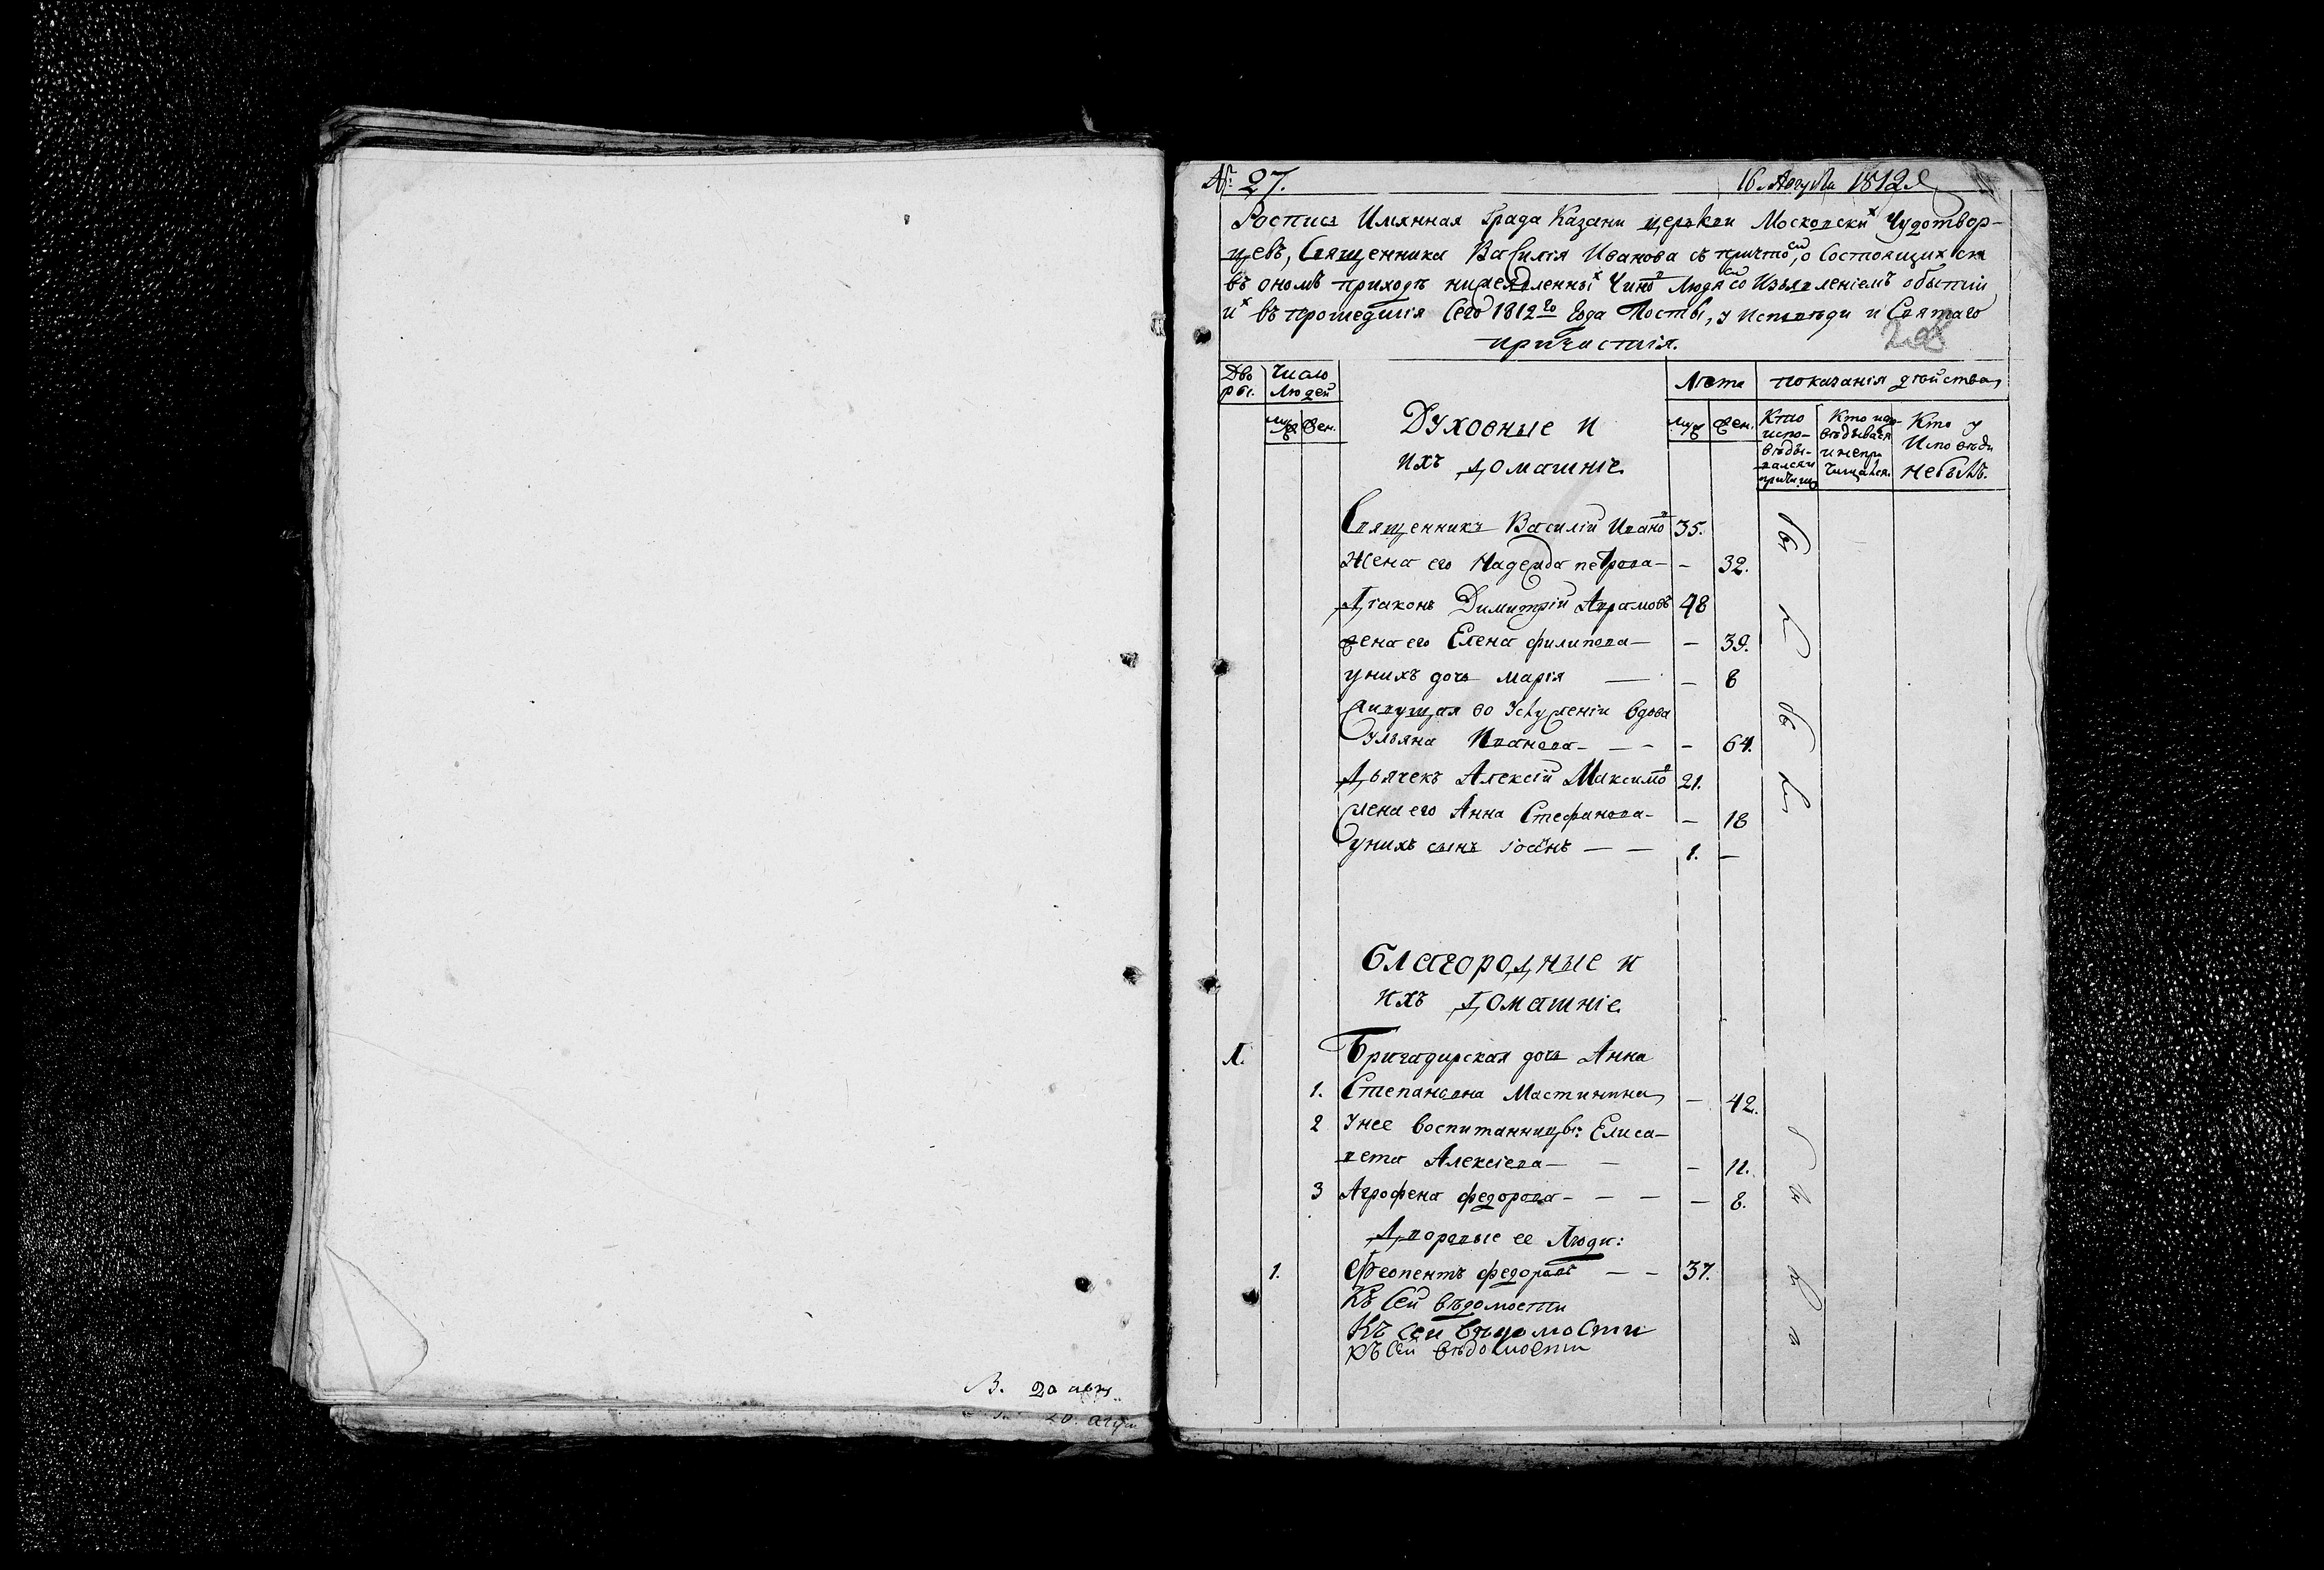 В. 20 авгу
20. авгу
№ 27.
16. Августа 1812
Роспись Имянная Града Казани церькви Московскихъ Чудотвор-
цевъ, Священника Василія Иванова съ причтомъ, о Состоящихъ
въ ономъ приходѣ нижеявленныхъ Чиновъ Людяхъ со Изъявленіемъ о бытіи
ихъ въ прошедшія Сего 1812го Года Посты, у Исповѣди и Святаго
причастія.
208
Дво
ры.
Число
Людей
муж
жен.
Духовные и
ихъ домашніе.
Лѣта
муж
жен.
показанія дѣйства,
Кто
испо-
вѣды-
вался и
причащ
Кто испо-
вѣдывался
и непри
чащался.
Кто у
Исповѣди
небылъ.
Священникъ Василій Ивановъ 35.
Жена его Надежда петрова — — 32.
Діаконъ Димитрій Аврамовъ 48
жена его Елена филипова — — 39.
унихъ дочь марія — — 8
Живущая во Услуженіи вдова
Ульяна Иванова — — — 64.
Дьячекъ Алексій Максимовъ 21.
жена его Анна Стефанова — — 18
унихъ сынъ Іоаннъ — — 1. —
Благородные и
ихъ домашніе.
1. Бригадирская дочь Анна
1. Степановна Мастинина — 42.
2 Унее воспитанницы: Елиса-
вета Алексіева — — — 11.
3 Агрофена федорова — — — — 8.
Дворовые ее Люди:
1. Феопентъ федоровъ — — 37.
Къ Сей вѣдомости
Къ сей вѣдомости
Къ Сей вѣдомости